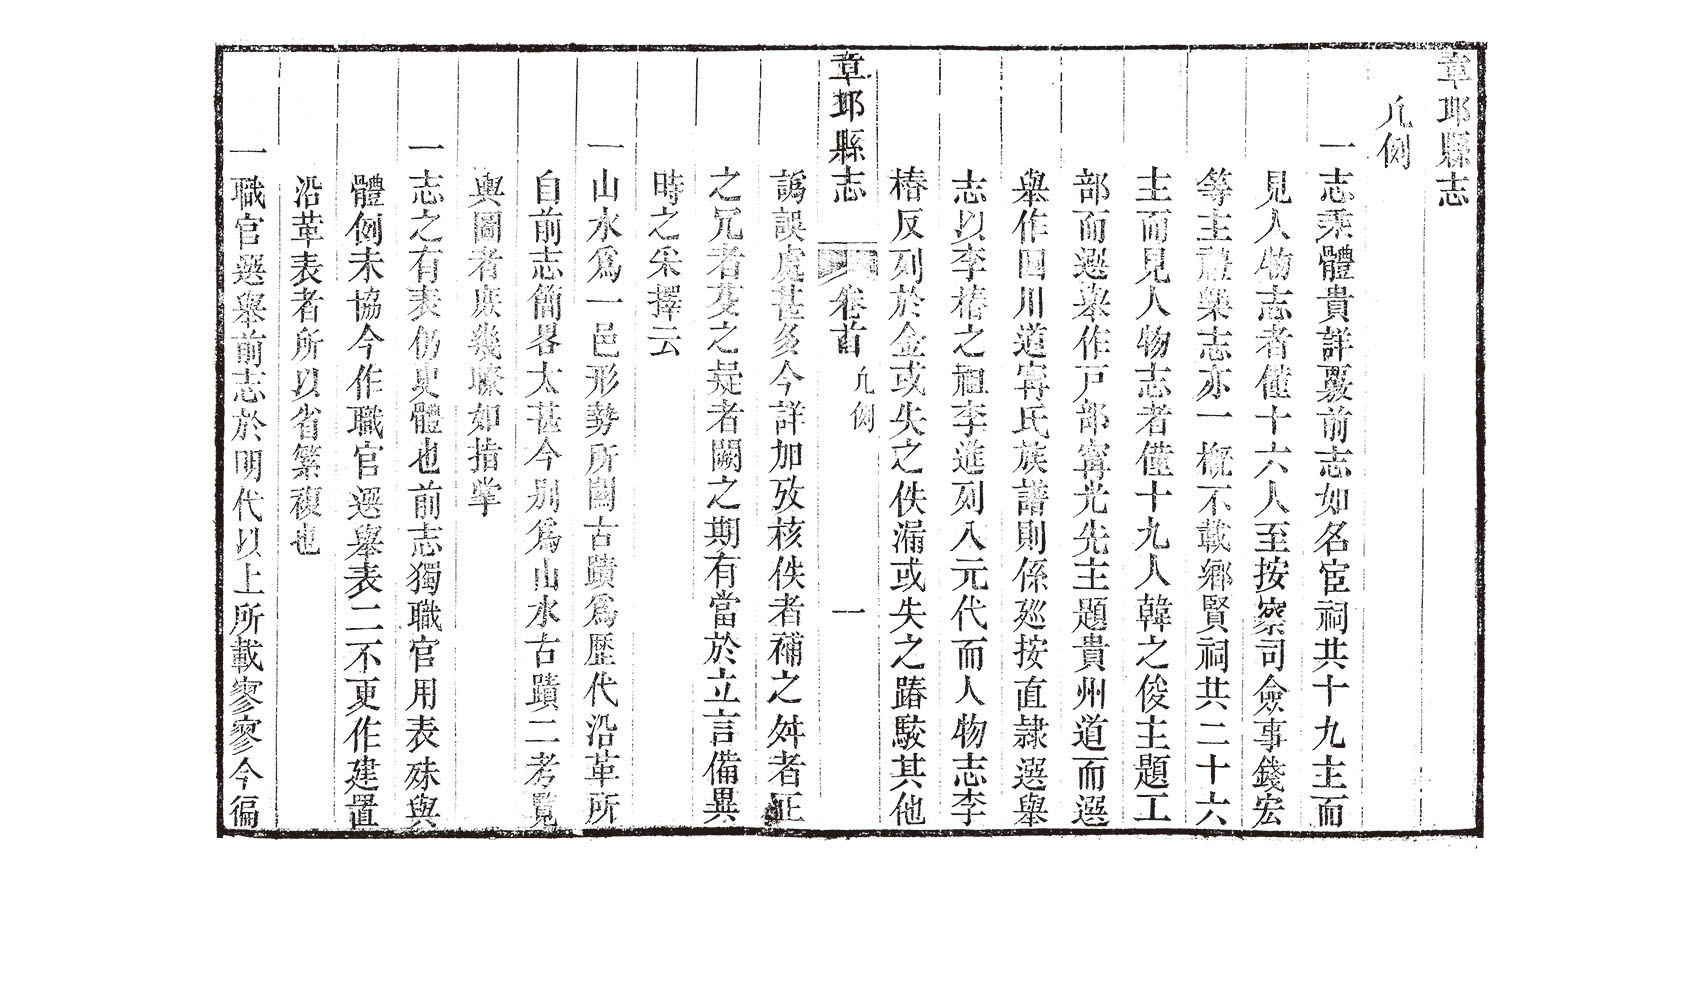 章邱縣志
凡例
一志乘體貴詳覈前志如名宦祠共十九主而
見人物志者僅十六人至按察司僉事錢宏
等主禮樂志亦一槪不載鄉賢祠共二十六
主而見人物志者僅十九人韓之俊主題工
部而選舉作戸部甯光先主題貴州道而選
舉作四川道甯氏族譜則係廵按直隷選舉
志以李椿之祖李進列入元代而人物志李
椿反列於金或失之佚漏或失之踳駁其他
章邱縣志 卷首 凡例 一
譌誤處甚多今詳加攷核佚者補之舛者正
之冗者芟之疑者闕之期有當於立言備異
時之采擇云
一山水爲一邑形勢所關古蹟爲歷代沿革所
自前志簡畧太甚今别爲山水古蹟二考覽
輿圖者庶幾瞭如指掌
一志之有表仍史體也前志獨職官用表殊與
體例未協今作職官選舉表二不更作建置
沿革表者所以省繁複也
一職官選舉前志於明代以上所載寥寥今徧